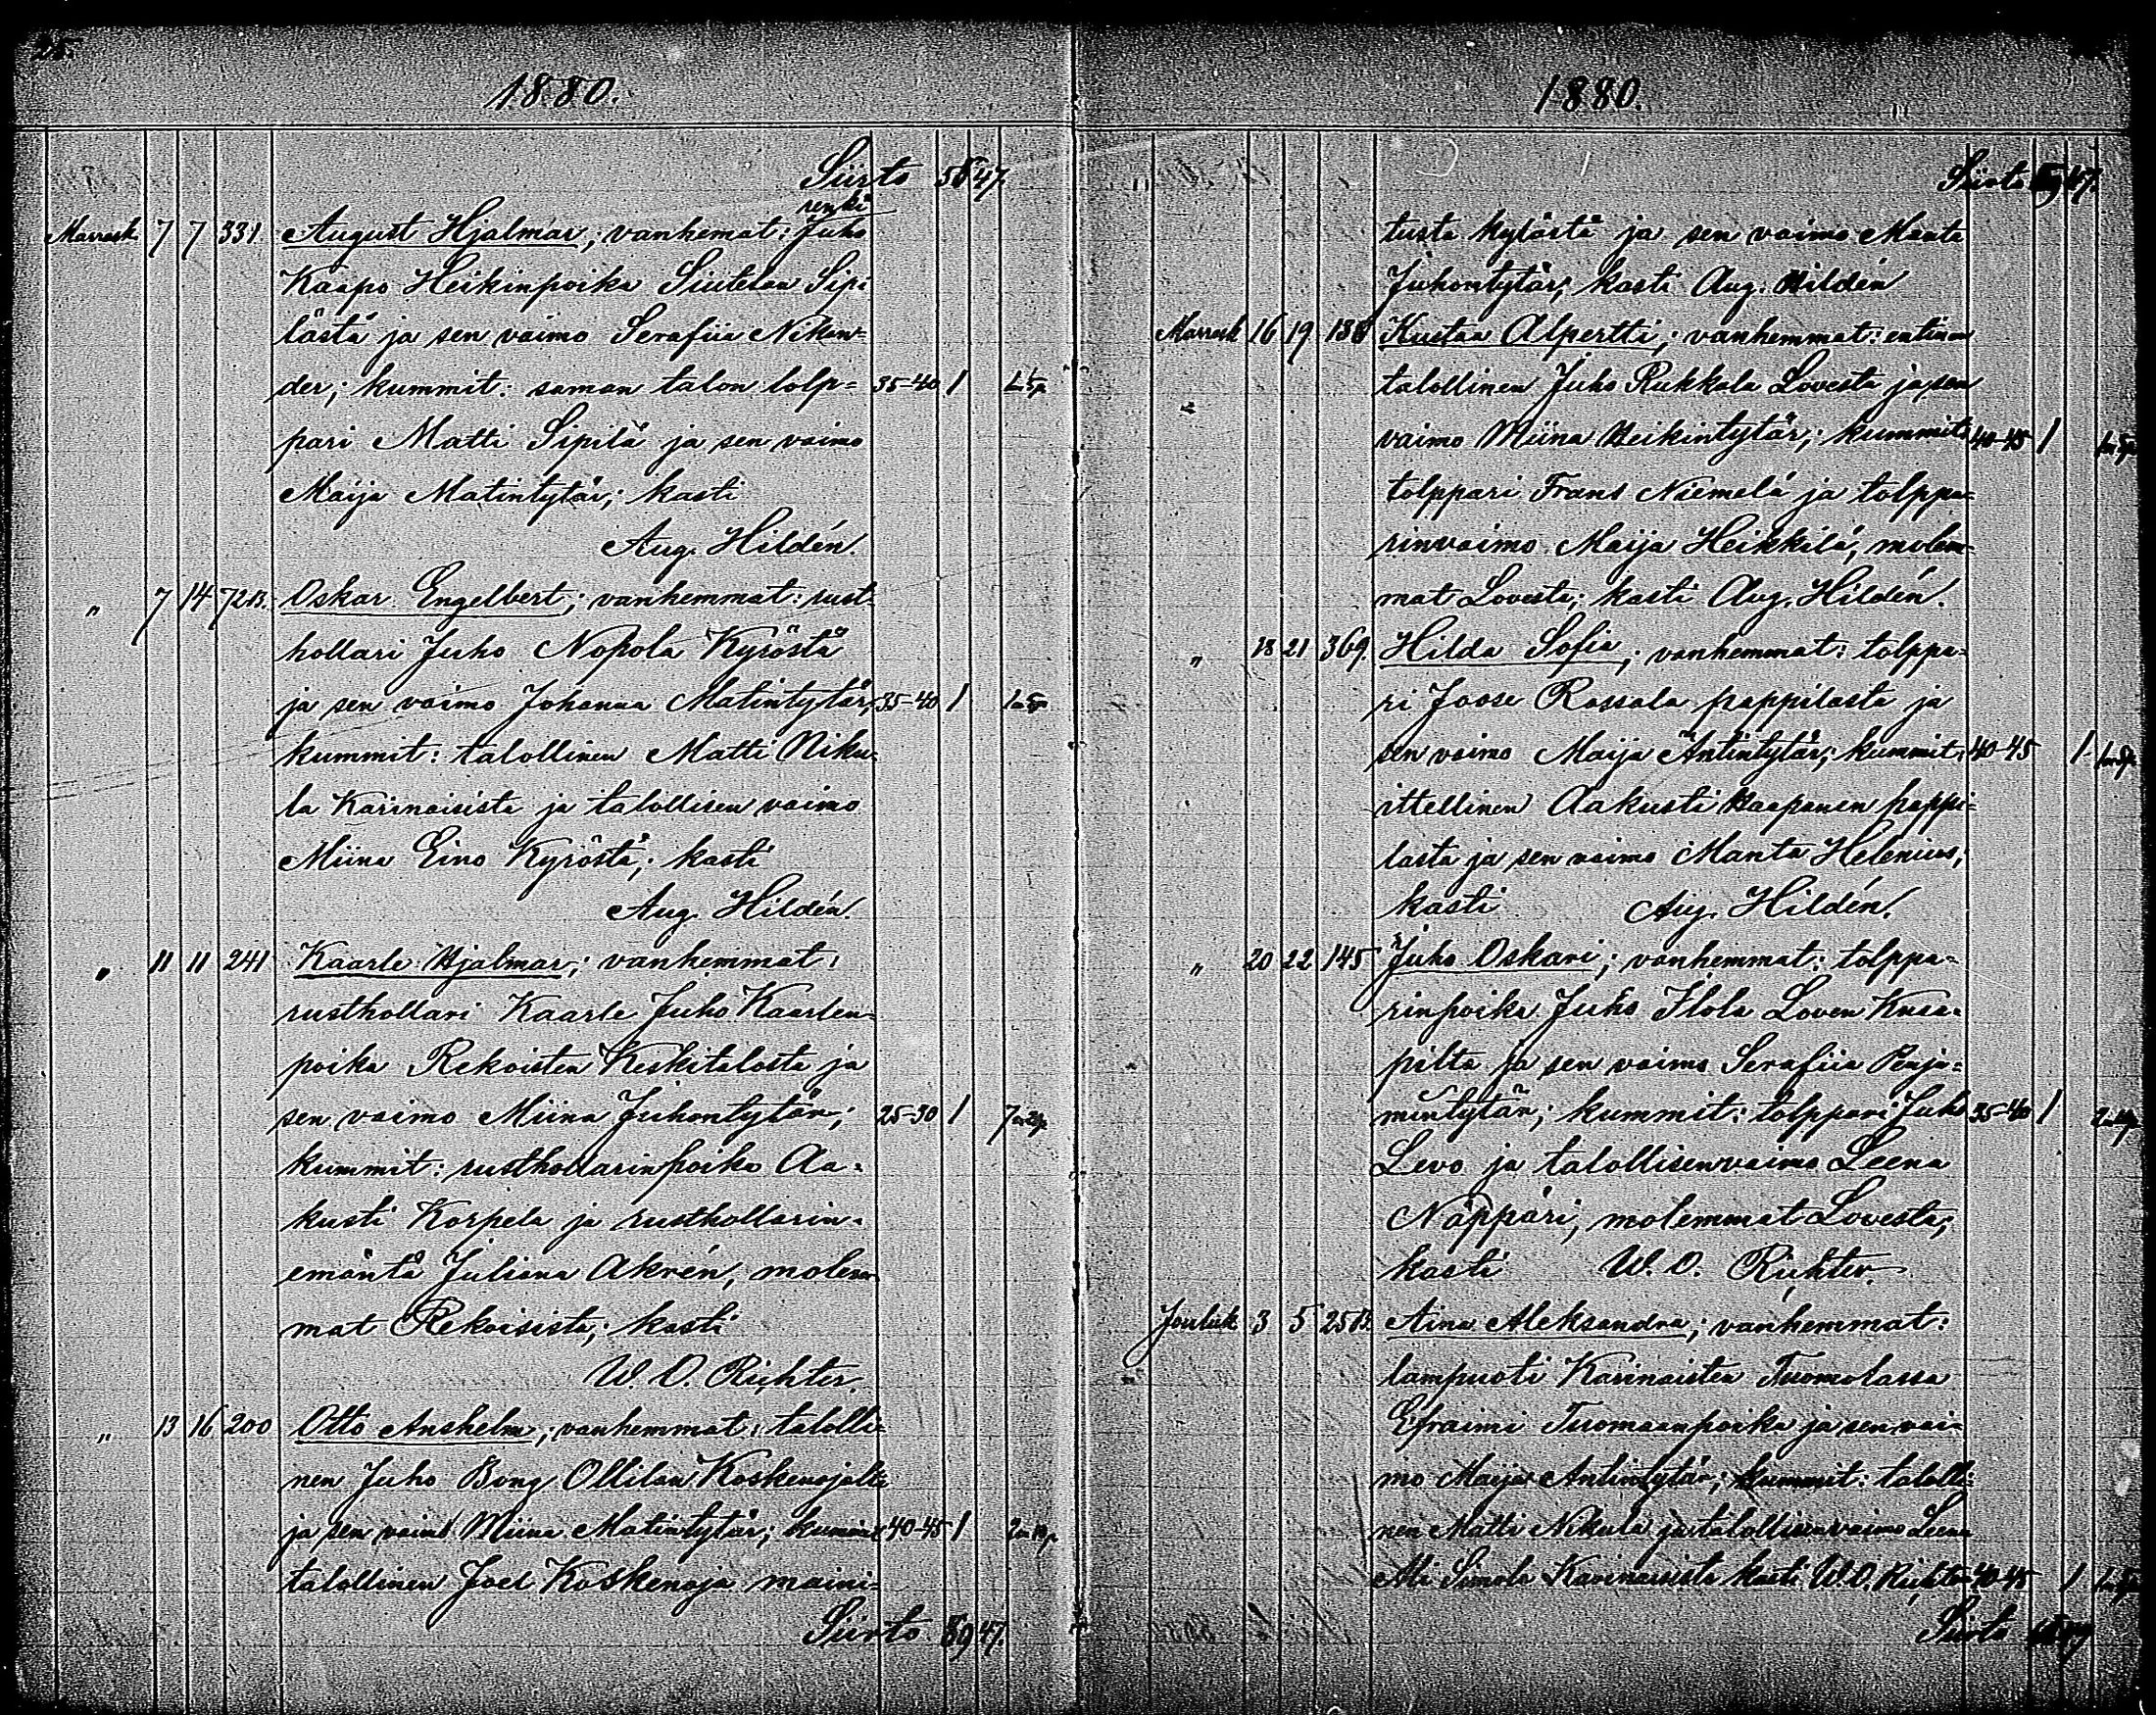 25.
1880.
Siirto 58 47.
Marrask. 7 7 331 August Hjalmar; vanhemat: renki Juho
Kaapo Heikinpoika Siutelan Sipi
lästä ja sen vaimo Serafiia Nikan-
der; kummit: saman talon tolp= 35-40 1
pari Matti Sipilä ja sen vaimo
Maija Matintytär; kasti
Aug. Hildén.
" 7 14 72.B. Oskar Engelbert; vanhemmat: rust-
hollari Juho Nopola Kyröstä
ja sen vaimo Johanna Matintytär; 35-40 1
kummit: talollinen Matti Niku-
la Karinaisista ja talollisen vaimo
Miina Eino Kyröstä; kasti
Aug. Hildén.
" 11 11 241 Kaarle Hjalmar; vanhemmat:
rusthollari Kaarle Juho Kaarlen-
poika Rekoisten Keskitalosta ja
sen vaimo Miina Juhontytär; 25-30 1
kummit: rusthollarinpoika Aa-
kusti Korpela ja rusthollarin-
emäntä Juliana Akrén, molem-
mat Rekoisista; kasti
W. O. Richter.
" 13 16 200 Otto Anshelm; vanhemmat: talolli-
nen Juho Bong Ollilan Koskenojalta
ja sen vaimo Miina Matintytär; kummit 40-45 1
talollinen Joel Koskenoja maini-
Siirto 59 47.
1880.
Siirto 59 47.
tusta kylästä ja sen vaimo Manta
Juhontytär; kasti Aug. Hildén
Marrask 16 19 138 Kustaa Alpertti; vanhemmat: entinen
talollinen Juho Rukkala Lovesta ja sen
vaimo Miina Heikintytär; kummit: 40-45 1
tolppari Frans Niemelä ja tolppa-
rinvaimo Maija Heikkilä, molem-
mat Lovesta; kasti Aug. Hildén.
" 18 21 369. Hilda Sofia; vanhemmat: tolppa-
ri Joose Rassala pappilasta ja
sen vaimo Maija Antintytär; kummit: 40-45 1
ittellinen Aakusti Haapanen pappi-
lasta ja sen vaimo Manta Helenius;
kasti Aug. Hildén.
" 20 22 145 Juho Oskari; vanhemmat: tolppa-
rinpoika Juho Ilola Loven Knaa-
pilta ja sen vaimo Serafiia Penja-
mintytär; kummit: tolppari Juho 35-40 1
Levo ja talollisenvaimo Leena
Näppäri, molemmat Lovesta;
kasti W. O. Richter.
Jouluk 3 5 25B. Aina Aleksandra; vanhemmat:
lampuoti Karinaisten Tuomolassa
Efraimi Tuomaanpoika ja sen vai-
mo Maija Antintytär; kummit: talolli-
nen Matti Nikula ja talollisenvaimo Leena
Ali Simola Karinaisista kasti W.O. Richter 40-45 1
Siirto